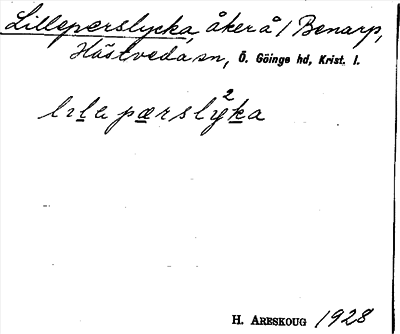 Lilleperslycka, åker å / Benarp,
Hästveda sn, Ö. Göinge hd, Krist. l.
lıla pærsly²ka
H. ARESKOUG 1928